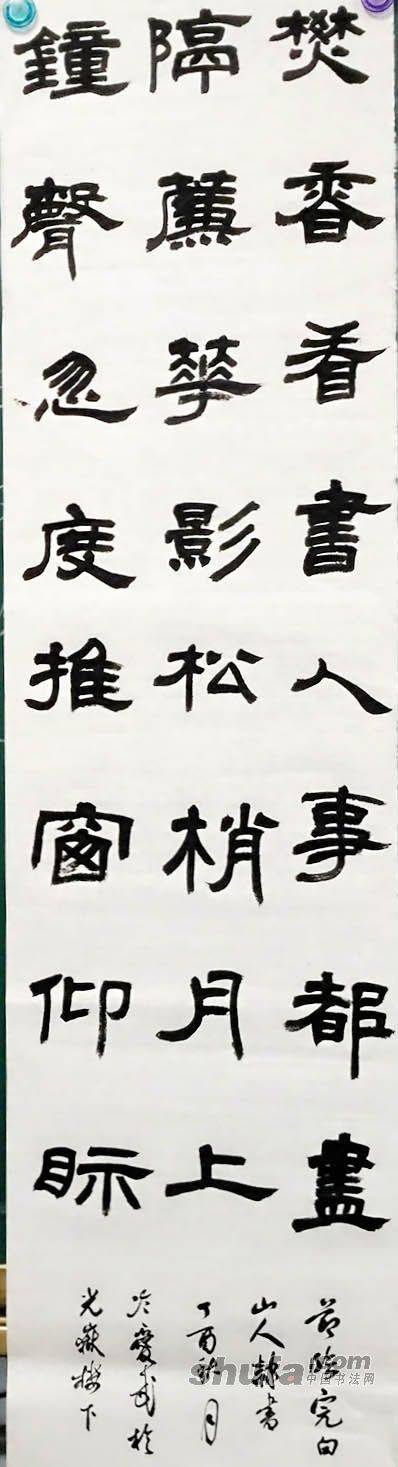 焚香看書人事都盡
隔簾華影松梢月上
鐘聲忽度推窗仰眎
節臨完白
山人隸書
丁酉秋月
於
光嶽樓下
shufa.com
中国书法网